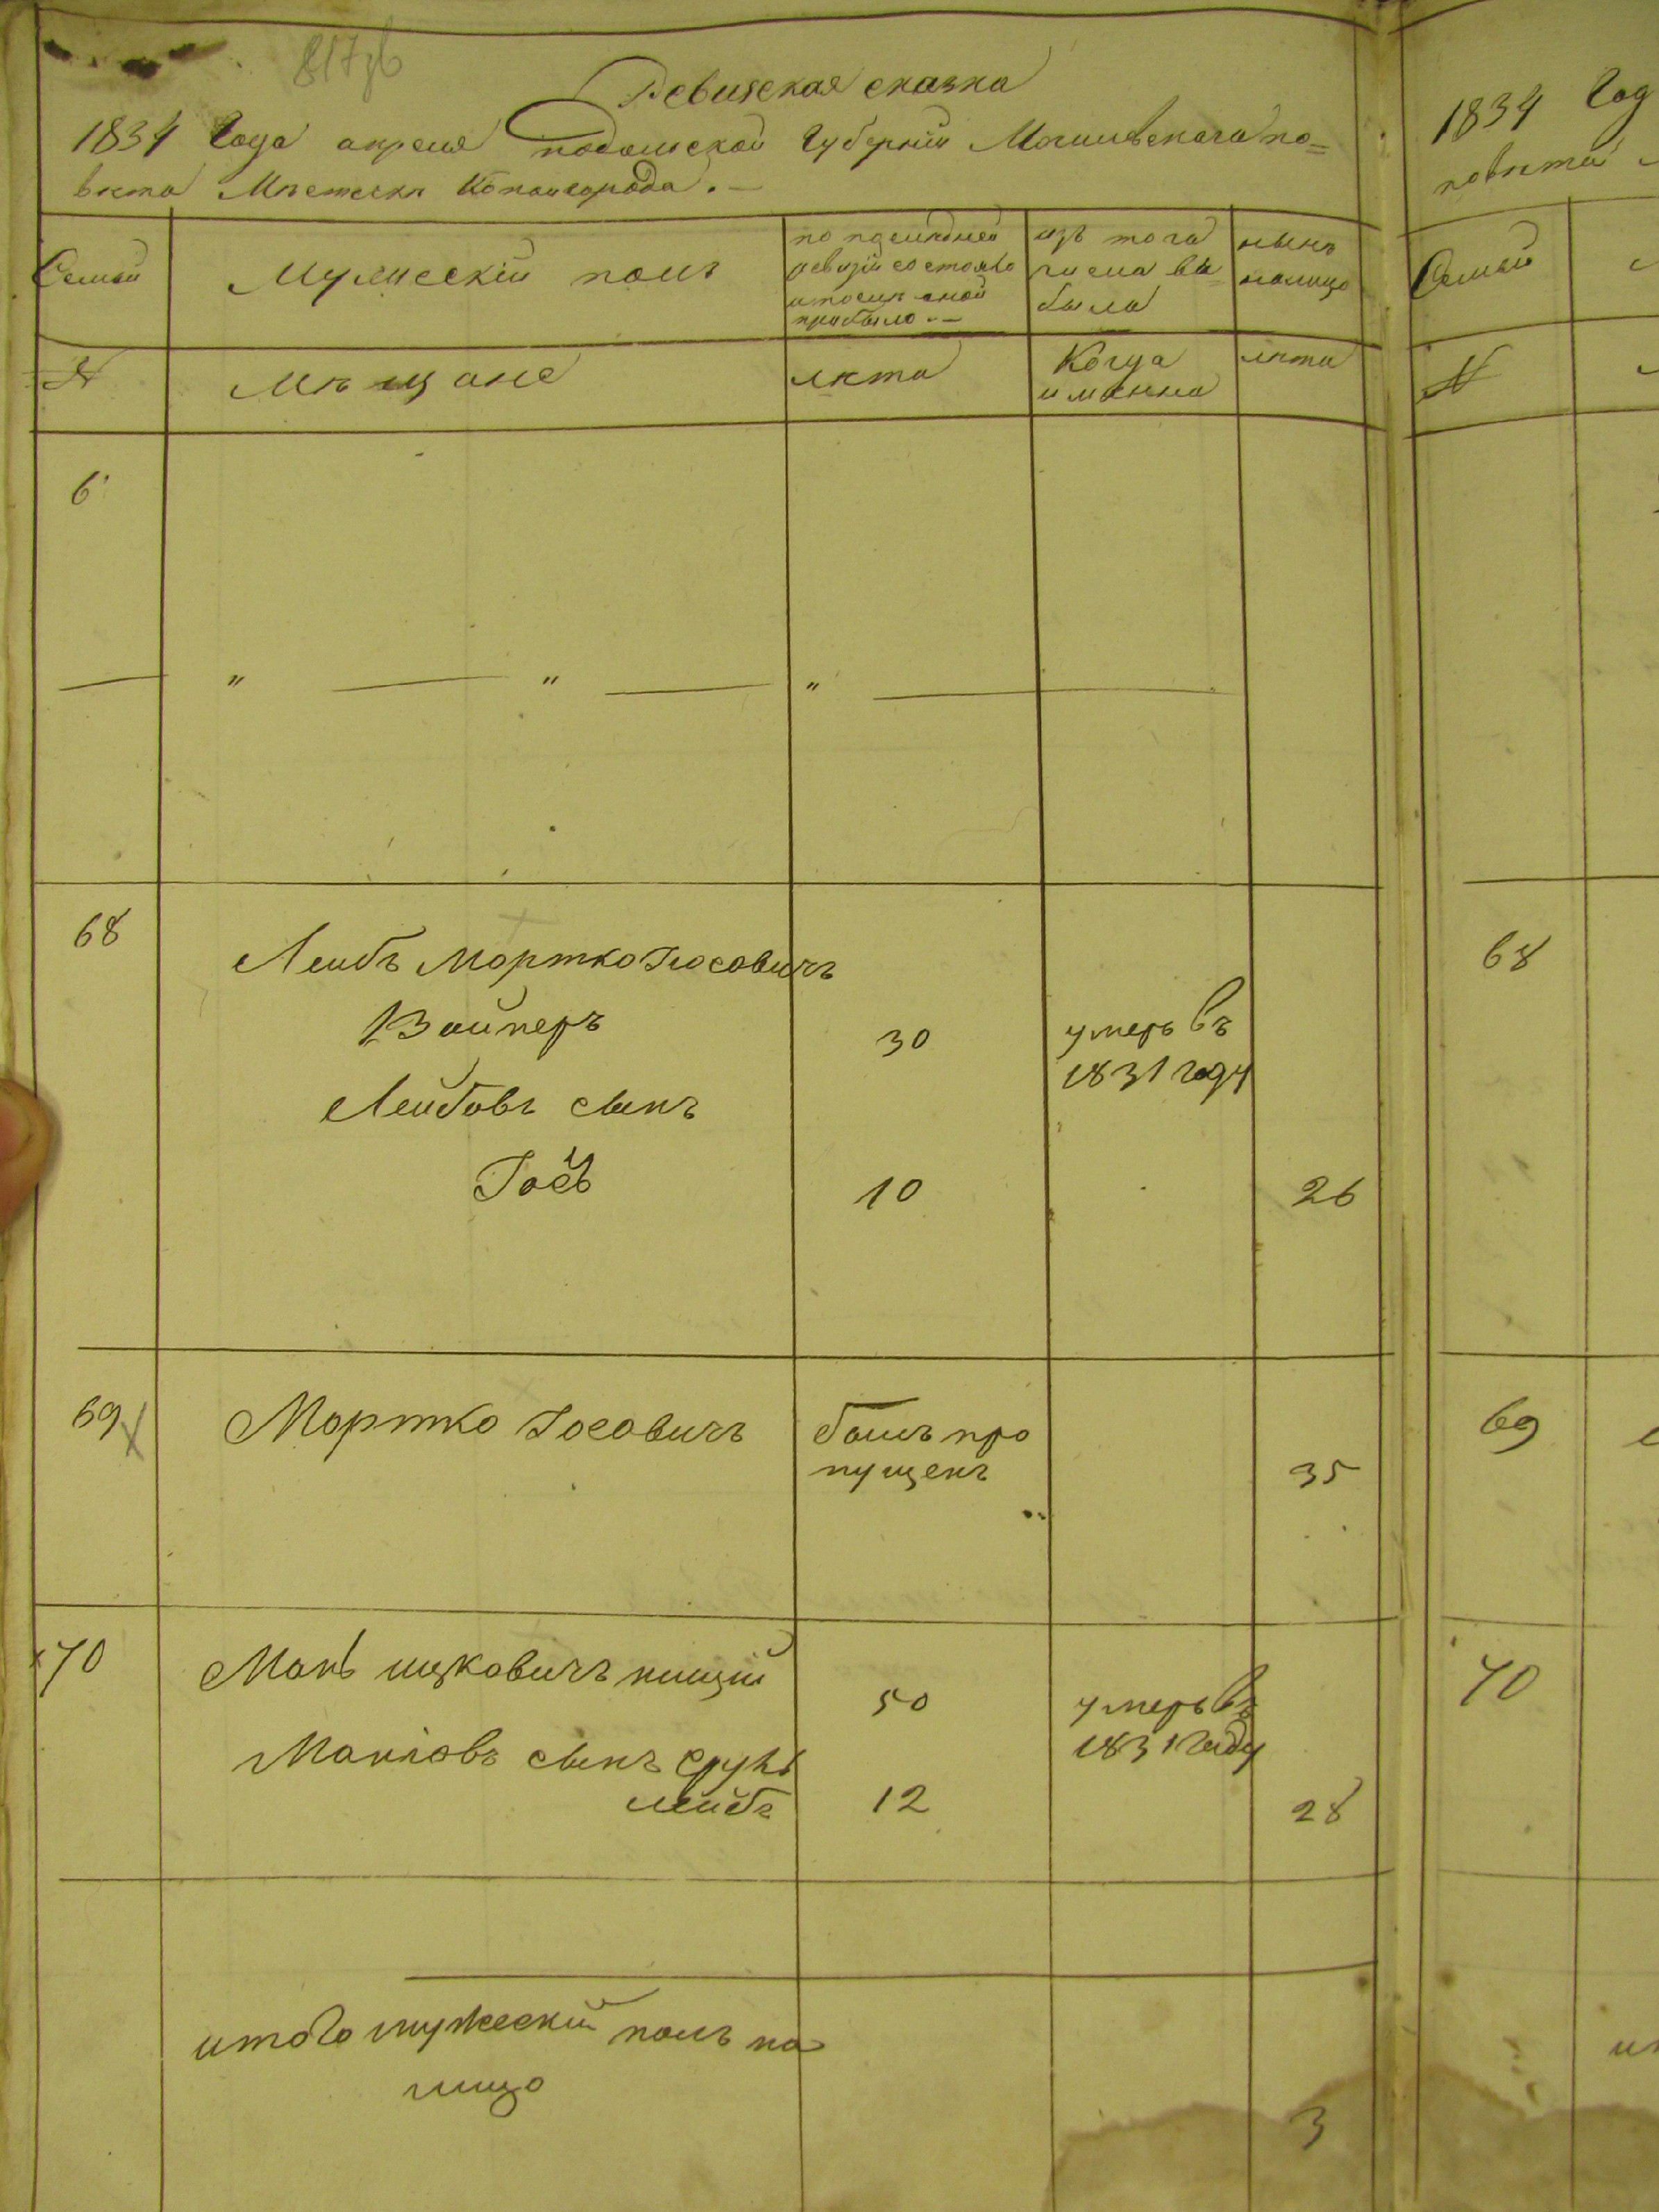 817об
Ревизская сказка
1834 Года апреля подольской Губернии Могилевскаго по=
вѣта Мѣстечка Копайгорода.—
Семьи
Мужескiй полъ
по последней
ревизiи состояло
и после оной
прибыло.—
изъ того
числа вы
было
нынѣ
налицо
№
Мѣщане
лѣта
Когда
имянно
лѣта
6
— " — " — " —
68
Лейбъ Мортко Iосовичъ
Вайнеръ
30
умеръ въ
1831 году
Лейбовъ сынъ
Iось
10
26
69
Мортко Iосовичъ
былъ про
пущенъ
35
70
Мань ицковичъ нищiй
50
умеръ въ
1831 Году
Манiовъ сынъ Сруль
лейбъ
12
28
итого мужескiй полъ на
лицо
3
1834 Год
повѣта
Семьи
№
68
69
70